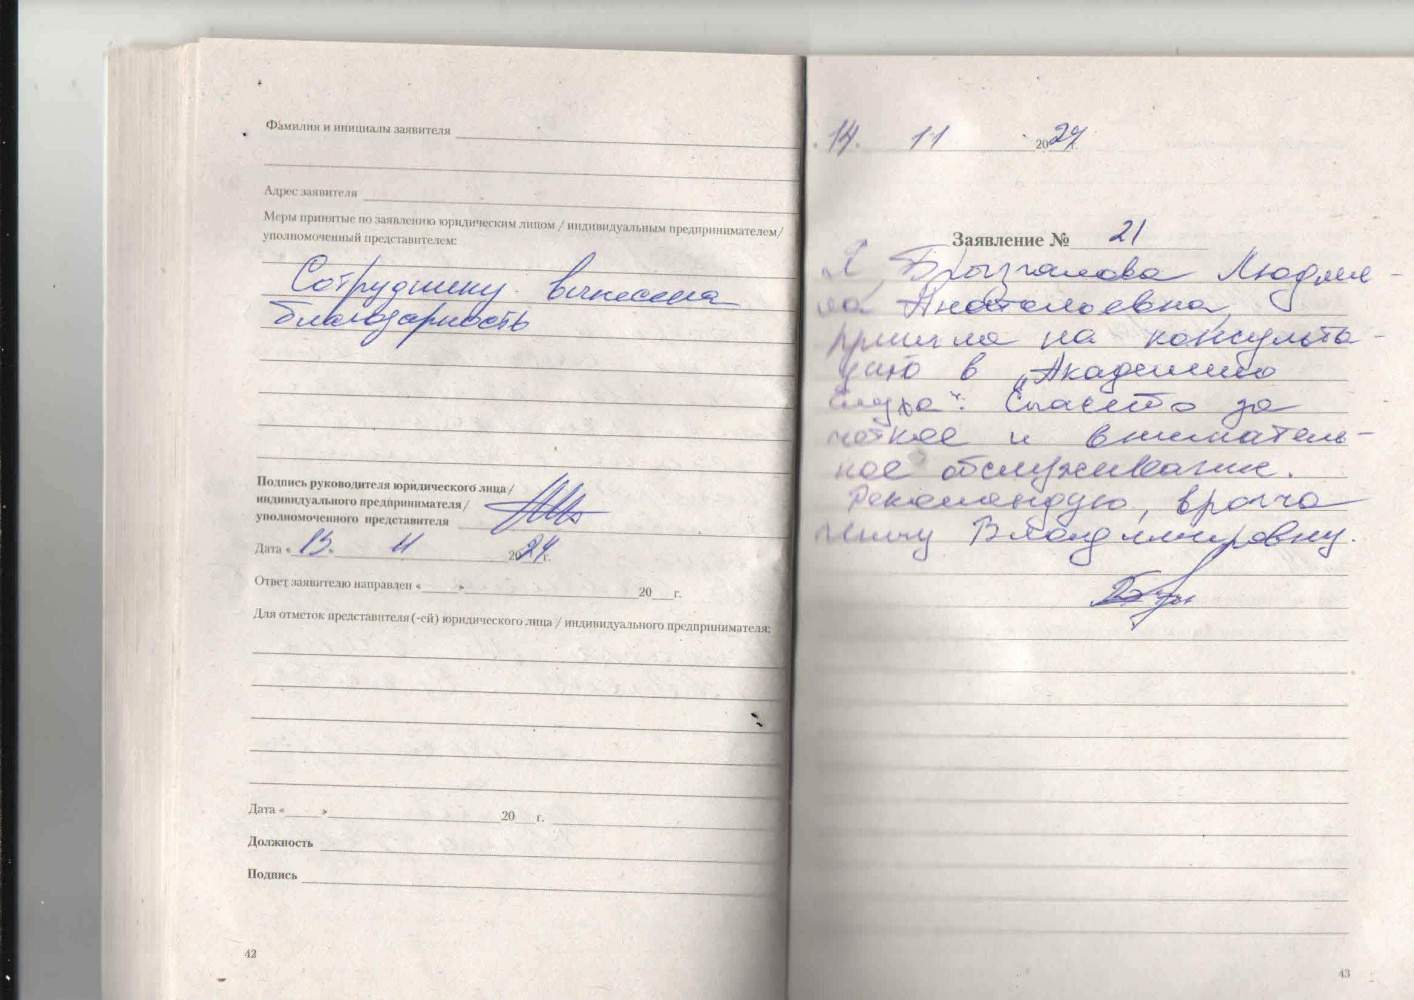 Фамилия и инициалы заявителя
Адрес заявителя
Меры принятые по заявлению юридическим лицом / индивидуальным предпринимателем/
уполномоченный представителем:
Сотруднику вынесена
благодарность
Подпись руководителя юридического лица/
индивидуального предпринимателя/
уполномоченного представителя
Дата « 11 2024г.
Ответ заявителю направлен « » 20 г.
Для отметок представителя(-ей) юридического лица / индивидуального предпринимателя:
Дата « » 20 г.
Должность
Подпись
42
14. 11 2024
Заявление № 21
Я, Брызгалова Людми-
ла Анатольевна,
пришла на консульта-
цию в "Академию
Слуха". Спасибо за
четкое и вниматель-
ное обслуживание.
Рекомендую, врача
Владимировну.
43